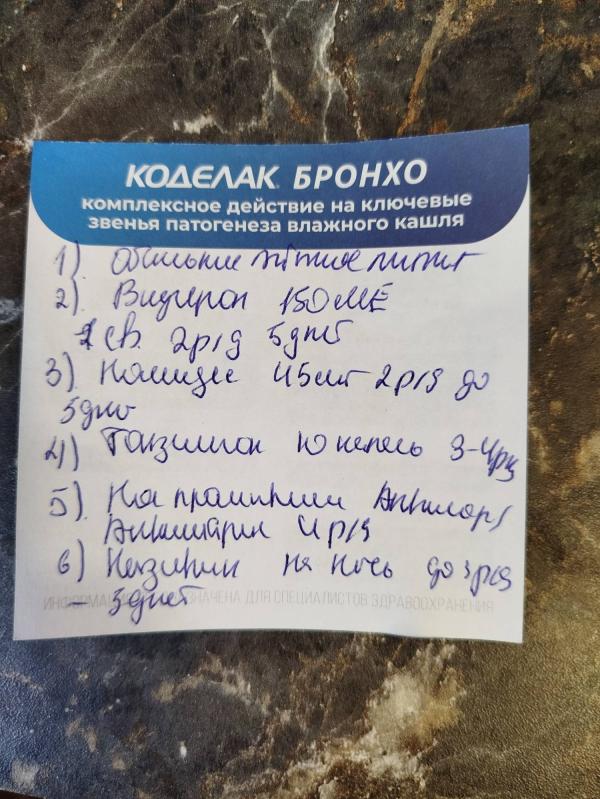 КОДЕЛАК БРОНХО
комплексное действие на ключевые
звенья патогенеза влажного кашля
1). Обильное питье
2). Виферон 150 МЕ
1 св. 2р/д 5 дней
3) 4,5 мл 2р/д до
5 дней
4) Тонзилгон 10 капель 3-4р/д
5). Аквалор/
Аквамарис 4р/д
6) Називин на ночь до 3р/д
– 3 дней
ИНФОРМАЦИЯ ПРЕДНАЗНАЧЕНА ДЛЯ СПЕЦИАЛИСТОВ ЗДРАВООХРАНЕНИЯ